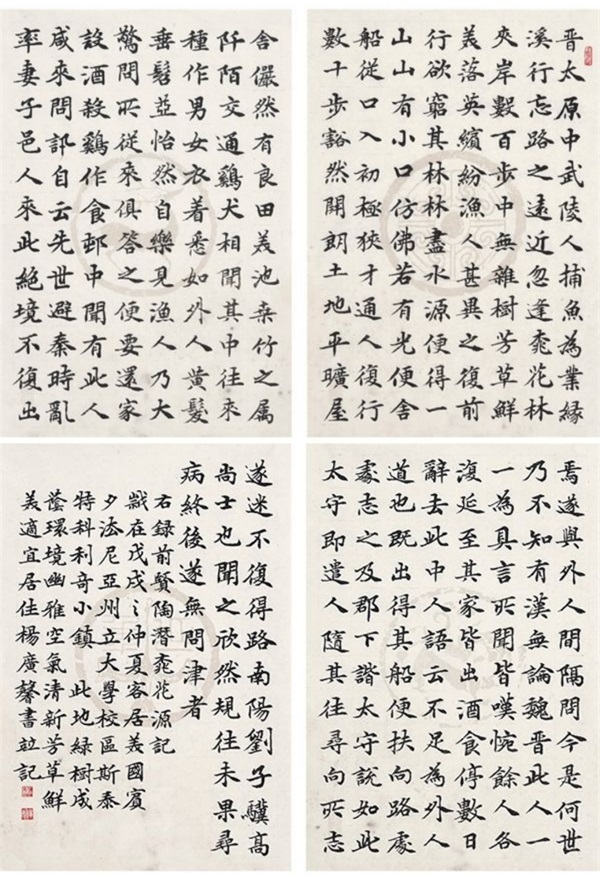 晉太原中武陵人捕魚為業緣
溪行忘路之遠近忽逢桃花林
夾岸數百步中無雜樹芳草鮮
美落英繽紛漁人甚異之復前
行欲窮其林林盡水源便得一
山山有小口仿佛若有光便舍
船從口入初極狹才通人復行
數十步豁然開朗土地平曠屋
舍儼然有良田美池桑竹之属
阡陌交通鷄犬相聞其中往來
種作男女衣着悉如外人黄髮
垂髫並怡然自樂見漁人乃大
驚問所從來俱答之便要還家
設酒殺鷄作食邨中聞有此人
咸來問訊自云先世避秦時亂
率妻子邑人來此絶境不復出
焉遂與外人間隔問今是何世
乃不知有漢無論魏晉此人一
一為具言所聞皆嘆惋餘人各
復延至其家皆出酒食停數日
辭去此中人語云不足為外人
道也既出得其船便扶向路處
處志之及郡下詣太守說如此
太守即遣人隨其往尋向所志
遂迷不復得路南陽劉子驥高
尚士也聞之欣然規往未果尋
病終後遂無問津者
右録前賢陶潛桃花源記
歲在戊戌之仲夏客居美國賓
夕法尼亞州立大學校區斯泰
特科利奇小鎮此地緑樹成
蔭環境幽雅空氣清新芳草鮮
美適宜居佳楊廣馨書並記